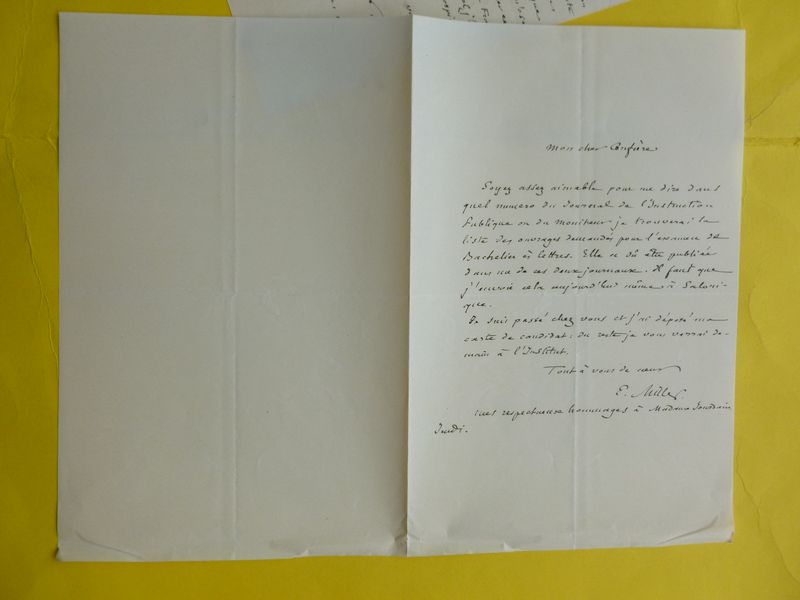 Mon cher Confrère
Soyez assez aimable pour me dire dans
quel numero du Journal de l'Instruction
Publique ou du Moniteur je trouverai la
liste des ouvrages demandés pour l'examen de
Bachelier ès lettres. Elle a dû être publiée
dans un de ces deux journaux. Il faut que
j'envoie cela aujourd'hui même à Saloni-
que.
Je suis passé chez vous et j'ai déposé ma
carte de candidat; du reste je vous verrai de-
main à l'Institut.
Tout à vous de cœur
E. Miller.
mes respectueux hommages à Madame Jourdain
Jeudi.